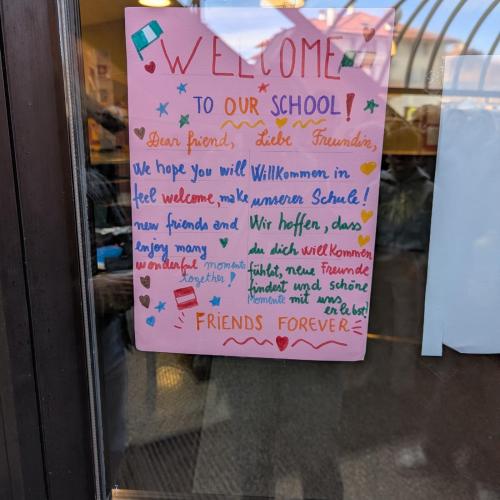 WELCOME
TO OUR SCHOOL!
Dear friend,
We hope you will
feel welcome, make
new friends and
enjoy many
wonderful moments
together!
Liebe Freundin,
Willkommen in
unserer Schule!
Wir hoffen, dass
du dich willkommen
fühlst, neue Freunde
findest und schöne
Momente mit uns
erlebst!
FRIENDS FOREVER